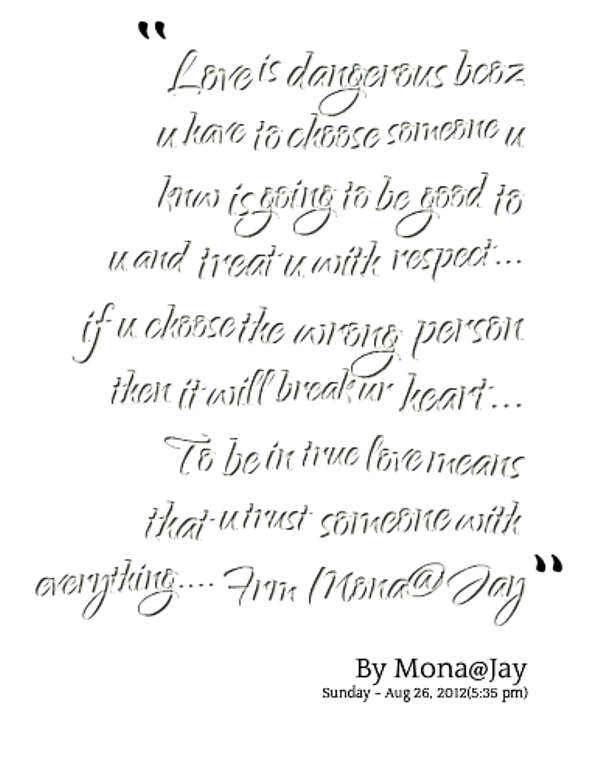 "
Love is dangerous bcoz
u have to choose someone u
knw is going to be good to
u and treat u with respect...
if u choose the wrong person
then it will break ur heart...
To be in true love means
that u trust someone with
everything.... Frm Mona@Jay"
By Mona@Jay
Sunday - Aug 26, 2012(5:35 pm)